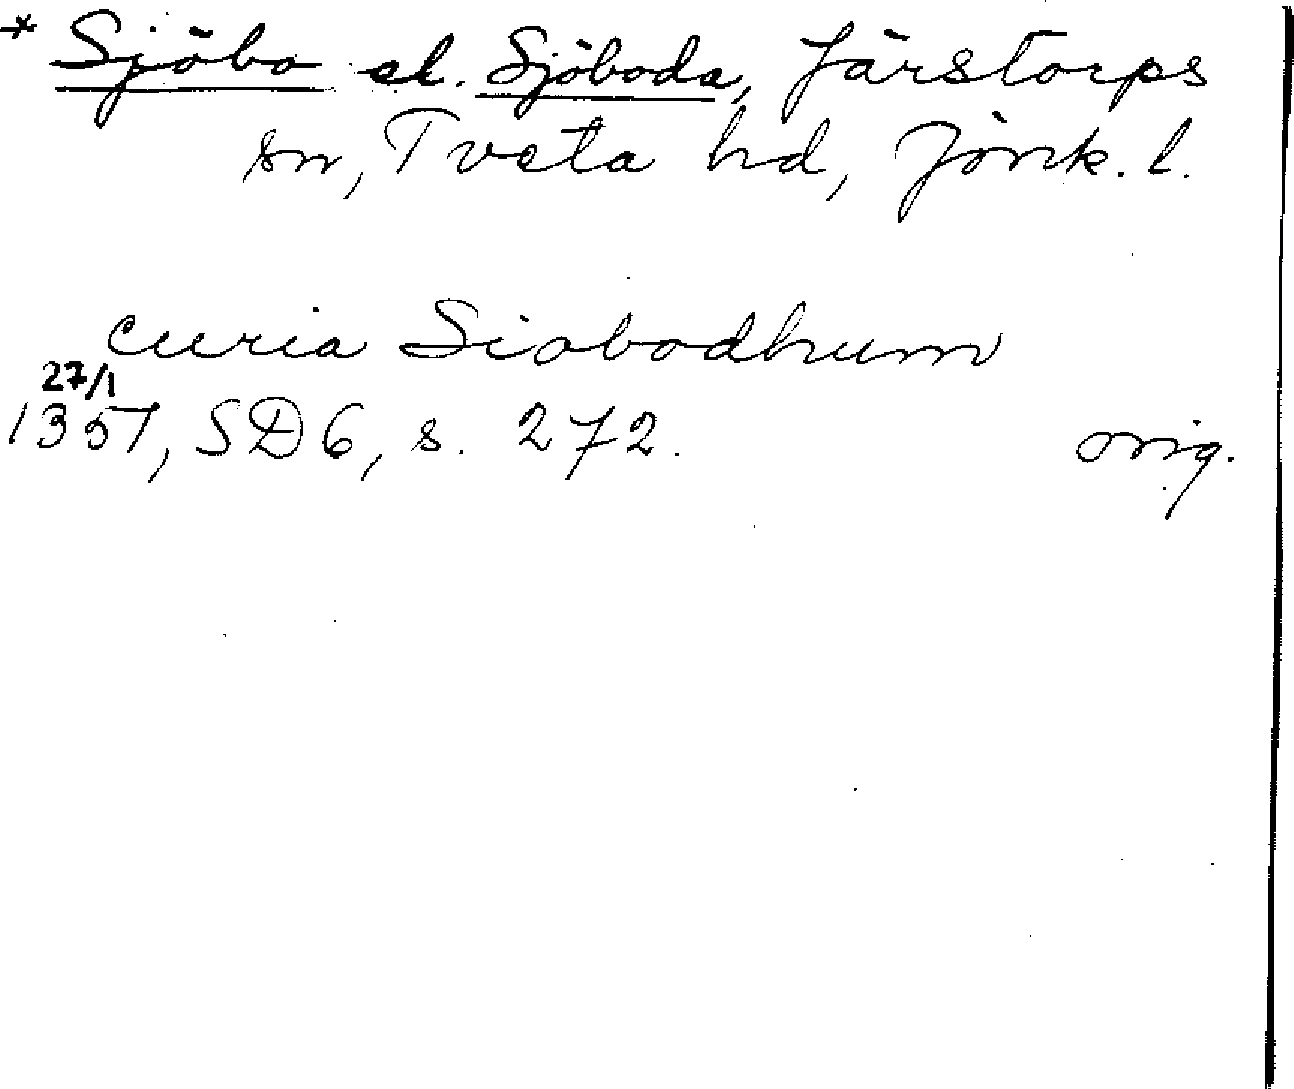 * Sjöbo el. Sjöboda, Järstorps
sn, Tveta hd, Jönk. l.
curia Siobodhum
27/1
1351, SD 6, s. 272. orig.